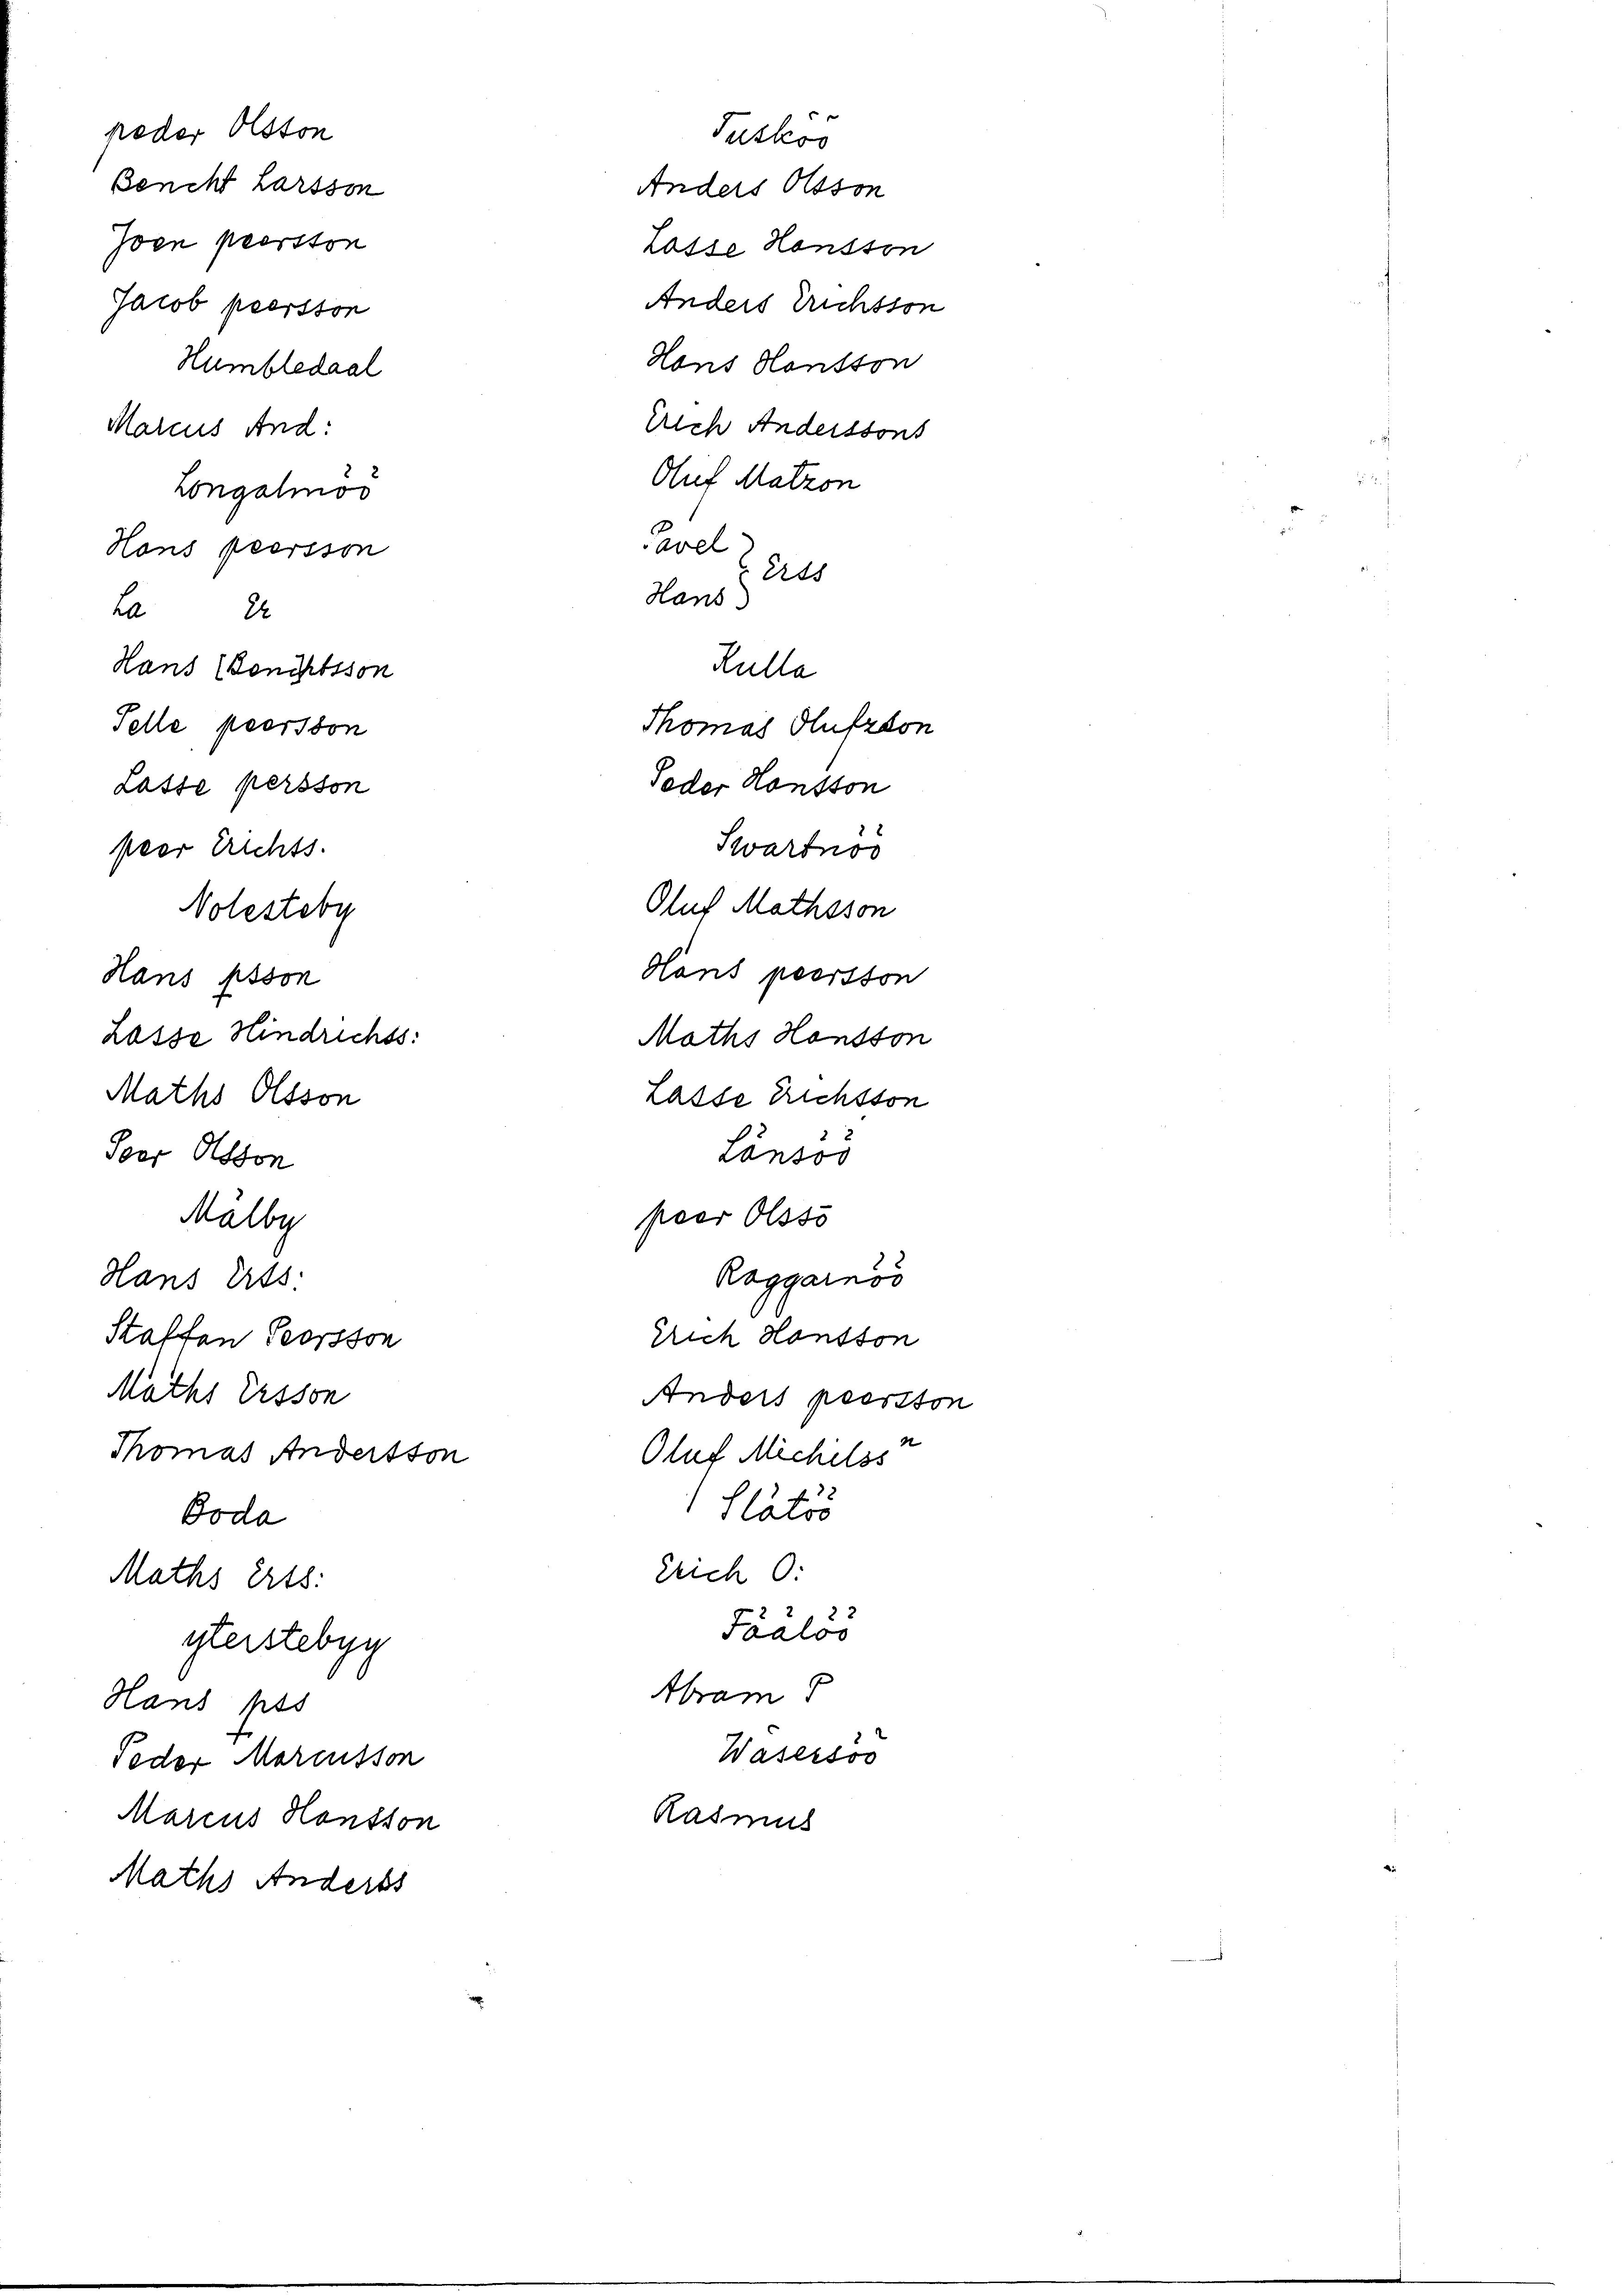 peder Olsson
Bencht Larsson
Joen peersson
Jacob peersson
Humbledaal
Marcus And:
Longalmöö
Hans peersson
La Er
Hans Benchtsson
Pelle peersson
Lasse persson
peer Erichss.
Nolesteby
Hans psson
Lasse Hindrichss:
Maths Olsson
Peer Olsson
Mälby
Hans Erss:
Staffan Peersson
Maths Ersson
Thomas Andersson
Boda
Maths Erss:
ytterstebyy
Hans pss
Peder Marcusson
Marcus Hansson
Maths Anderss
Tusköö
Anders Olsson
Lasse Hansson
Anders Erichsson
Hans Hansson
Erich Anderssons
Oluf Matzon
Pavel
Erss
Hans
Kulla
Thomas Olufzson
Peder Hansson
Swartnöö
Oluf Mathsson
Hans peersson
Maths Hansson
Lasse Erichsson
Länsöö
peer Olssö
Raggarnöö
Erich Hansson
Anders peersson
Oluf Michilssn
Slätöö
Erich O:
Fäälöö
Abram P
Wäsersöö
Rasmus